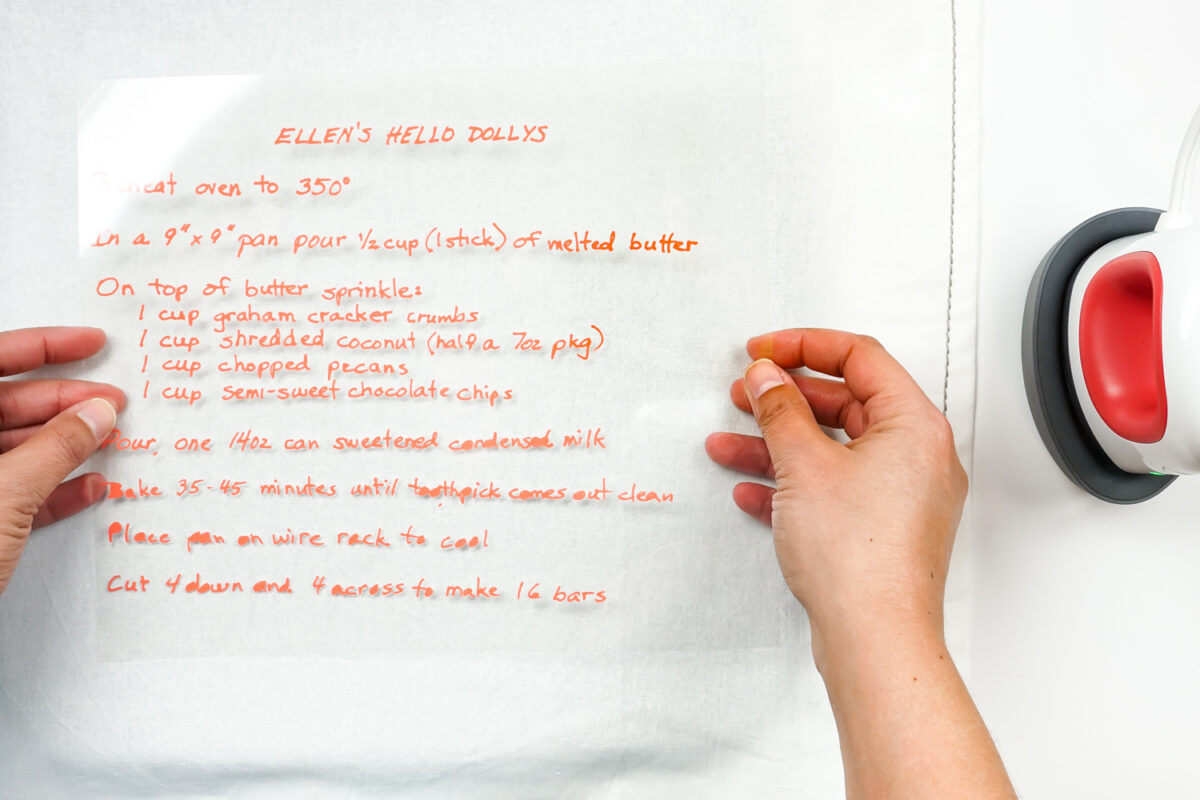 ELLEN'S HELLO DOLLYS
Preheat oven to 350°
In a 9"x 9" pan pour 1/2 cup (1 stick) of melted butter
On top of butter sprinkle:
1 cup graham cracker crumbs
1 cup shredded coconut (half a 7oz pkg)
1 cup chopped pecans
1 cup semi-sweet chocolate chips
Pour, one 14oz can sweetened condensed milk
Bake 35-45 minutes until toothpick comes out clean
Place pan on wire rack to cool
Cut 4 down and 4 across to make 16 bars